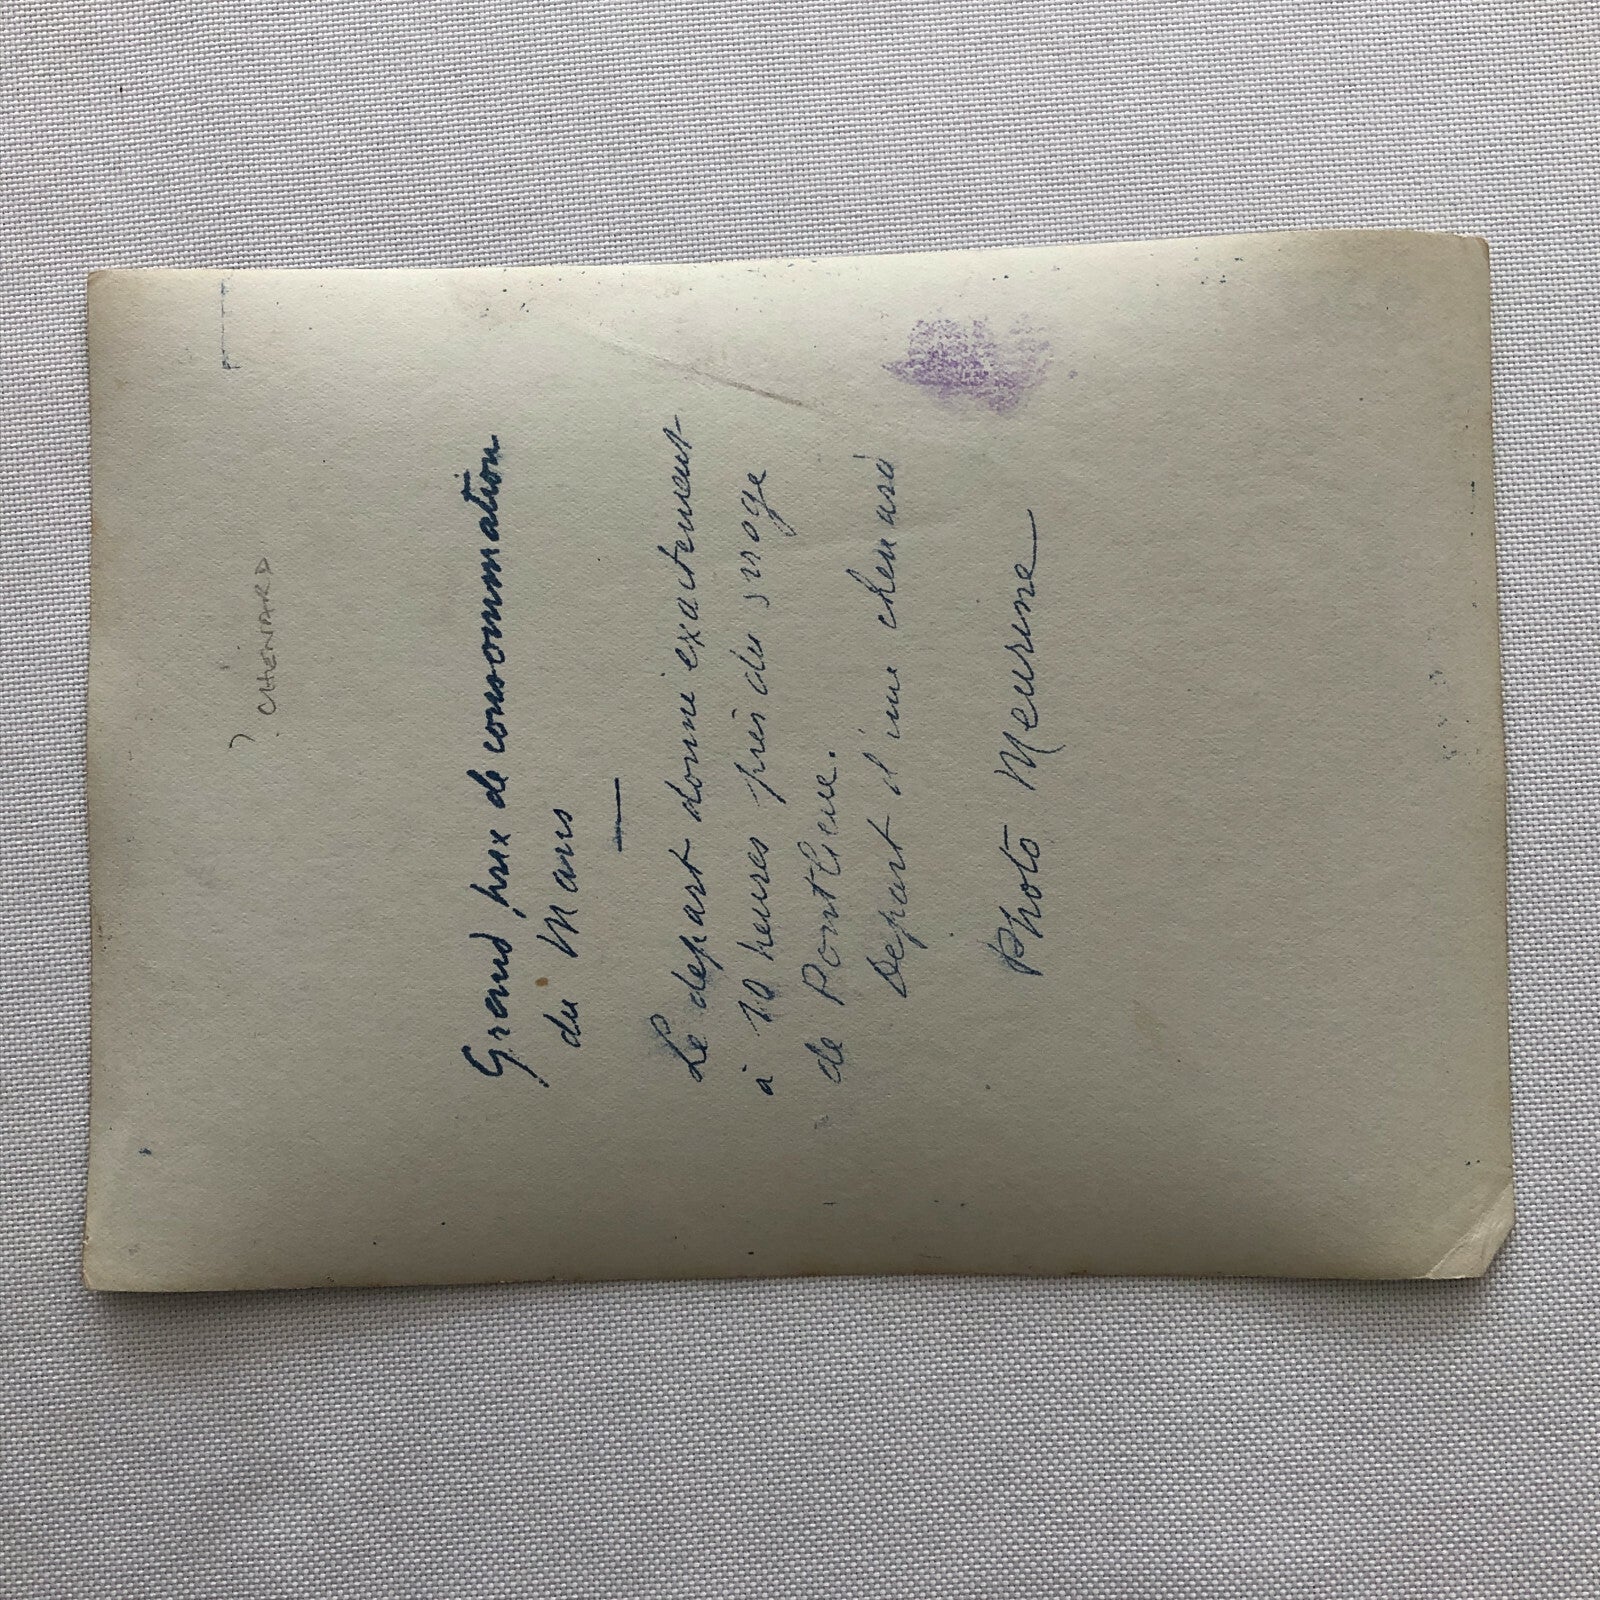 CHENARD
Grand prix de consommation
du Mans
Le depart donné exactement
à 10 heures près du
de Pontlieue.
Depart d'une chenard
Photo Meurisse